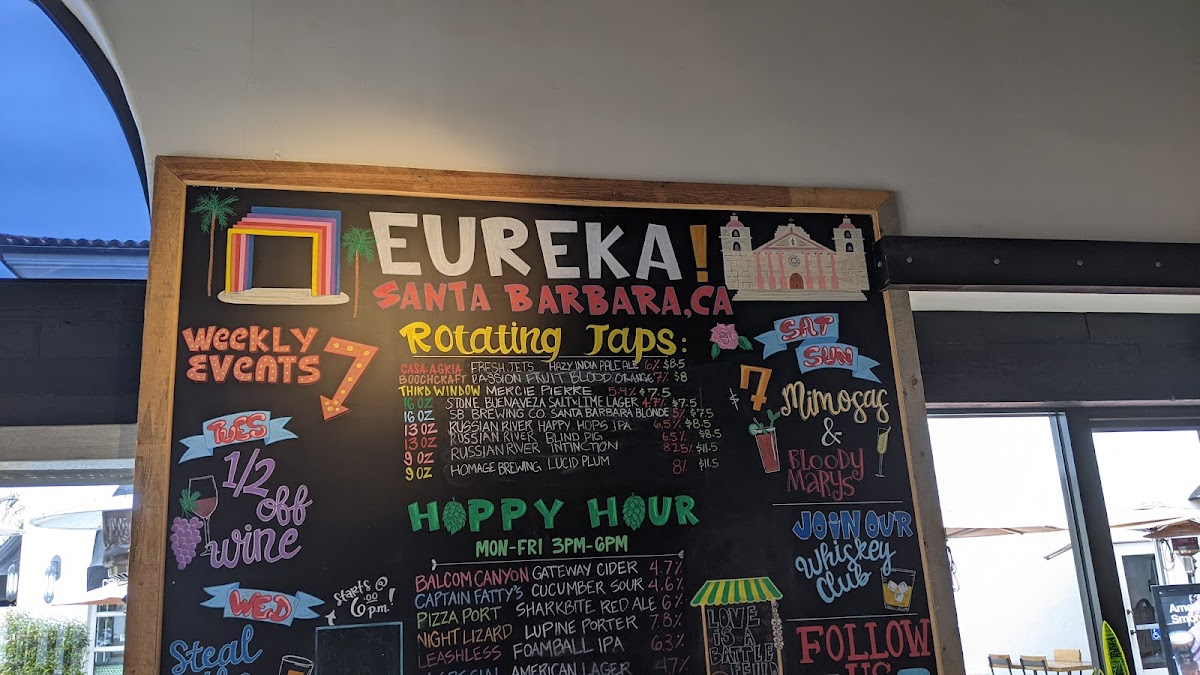 EUREKA!
SANTA BARBARA, CA
WEEKLY
EVENTS
TUES
1/2
off
wine
WED
Steal
starts @
6:00
p.m.!
Rotating Taps:
CASA AGRIA FRESH JETS HAZY INDIA PALE ALE 6% $8.5
BOOCHCRAFT PASSION FRUIT BLOOD ORANGE 7% $8
THIRD WINDOW MERCIE PIERRE 5.4% $7.5
16 OZ STONE BUENAVEZA SALT & LIME LAGER 4.7% $7.5
16 OZ SB BREWING CO. SANTA BARBARA BLONDE 5% $7.5
13 OZ RUSSIAN RIVER HAPPY HOPS IPA 6.5% $8.5
13 OZ RUSSIAN RIVER BLIND PIG 6.5% $8.5
9 OZ RUSSIAN RIVER INTINCTION 8.25% $11.5
9 OZ HOMAGE BREWING LUCID PLUM 8% $11.5
HOPPY HOUR
MON-FRI 3PM-6PM
BALCOM CANYON GATEWAY CIDER 4.7%
CAPTAIN FATTY'S CUCUMBER SOUR 4.6%
PIZZA PORT SHARKBITE RED ALE 6%
NIGHT LIZARD LUPINE PORTER 7.8%
LEASHLESS FOAMBALL IPA 6.3%
SPECIAL AMERICAN LAGER 4.7%
SAT
SUN
$7
Mimosas
&
BLOODY
MARYS
JOIN OUR
Whiskey
Club
LOVE
IS A
BATTLE
FEILD
FOLLOW
US